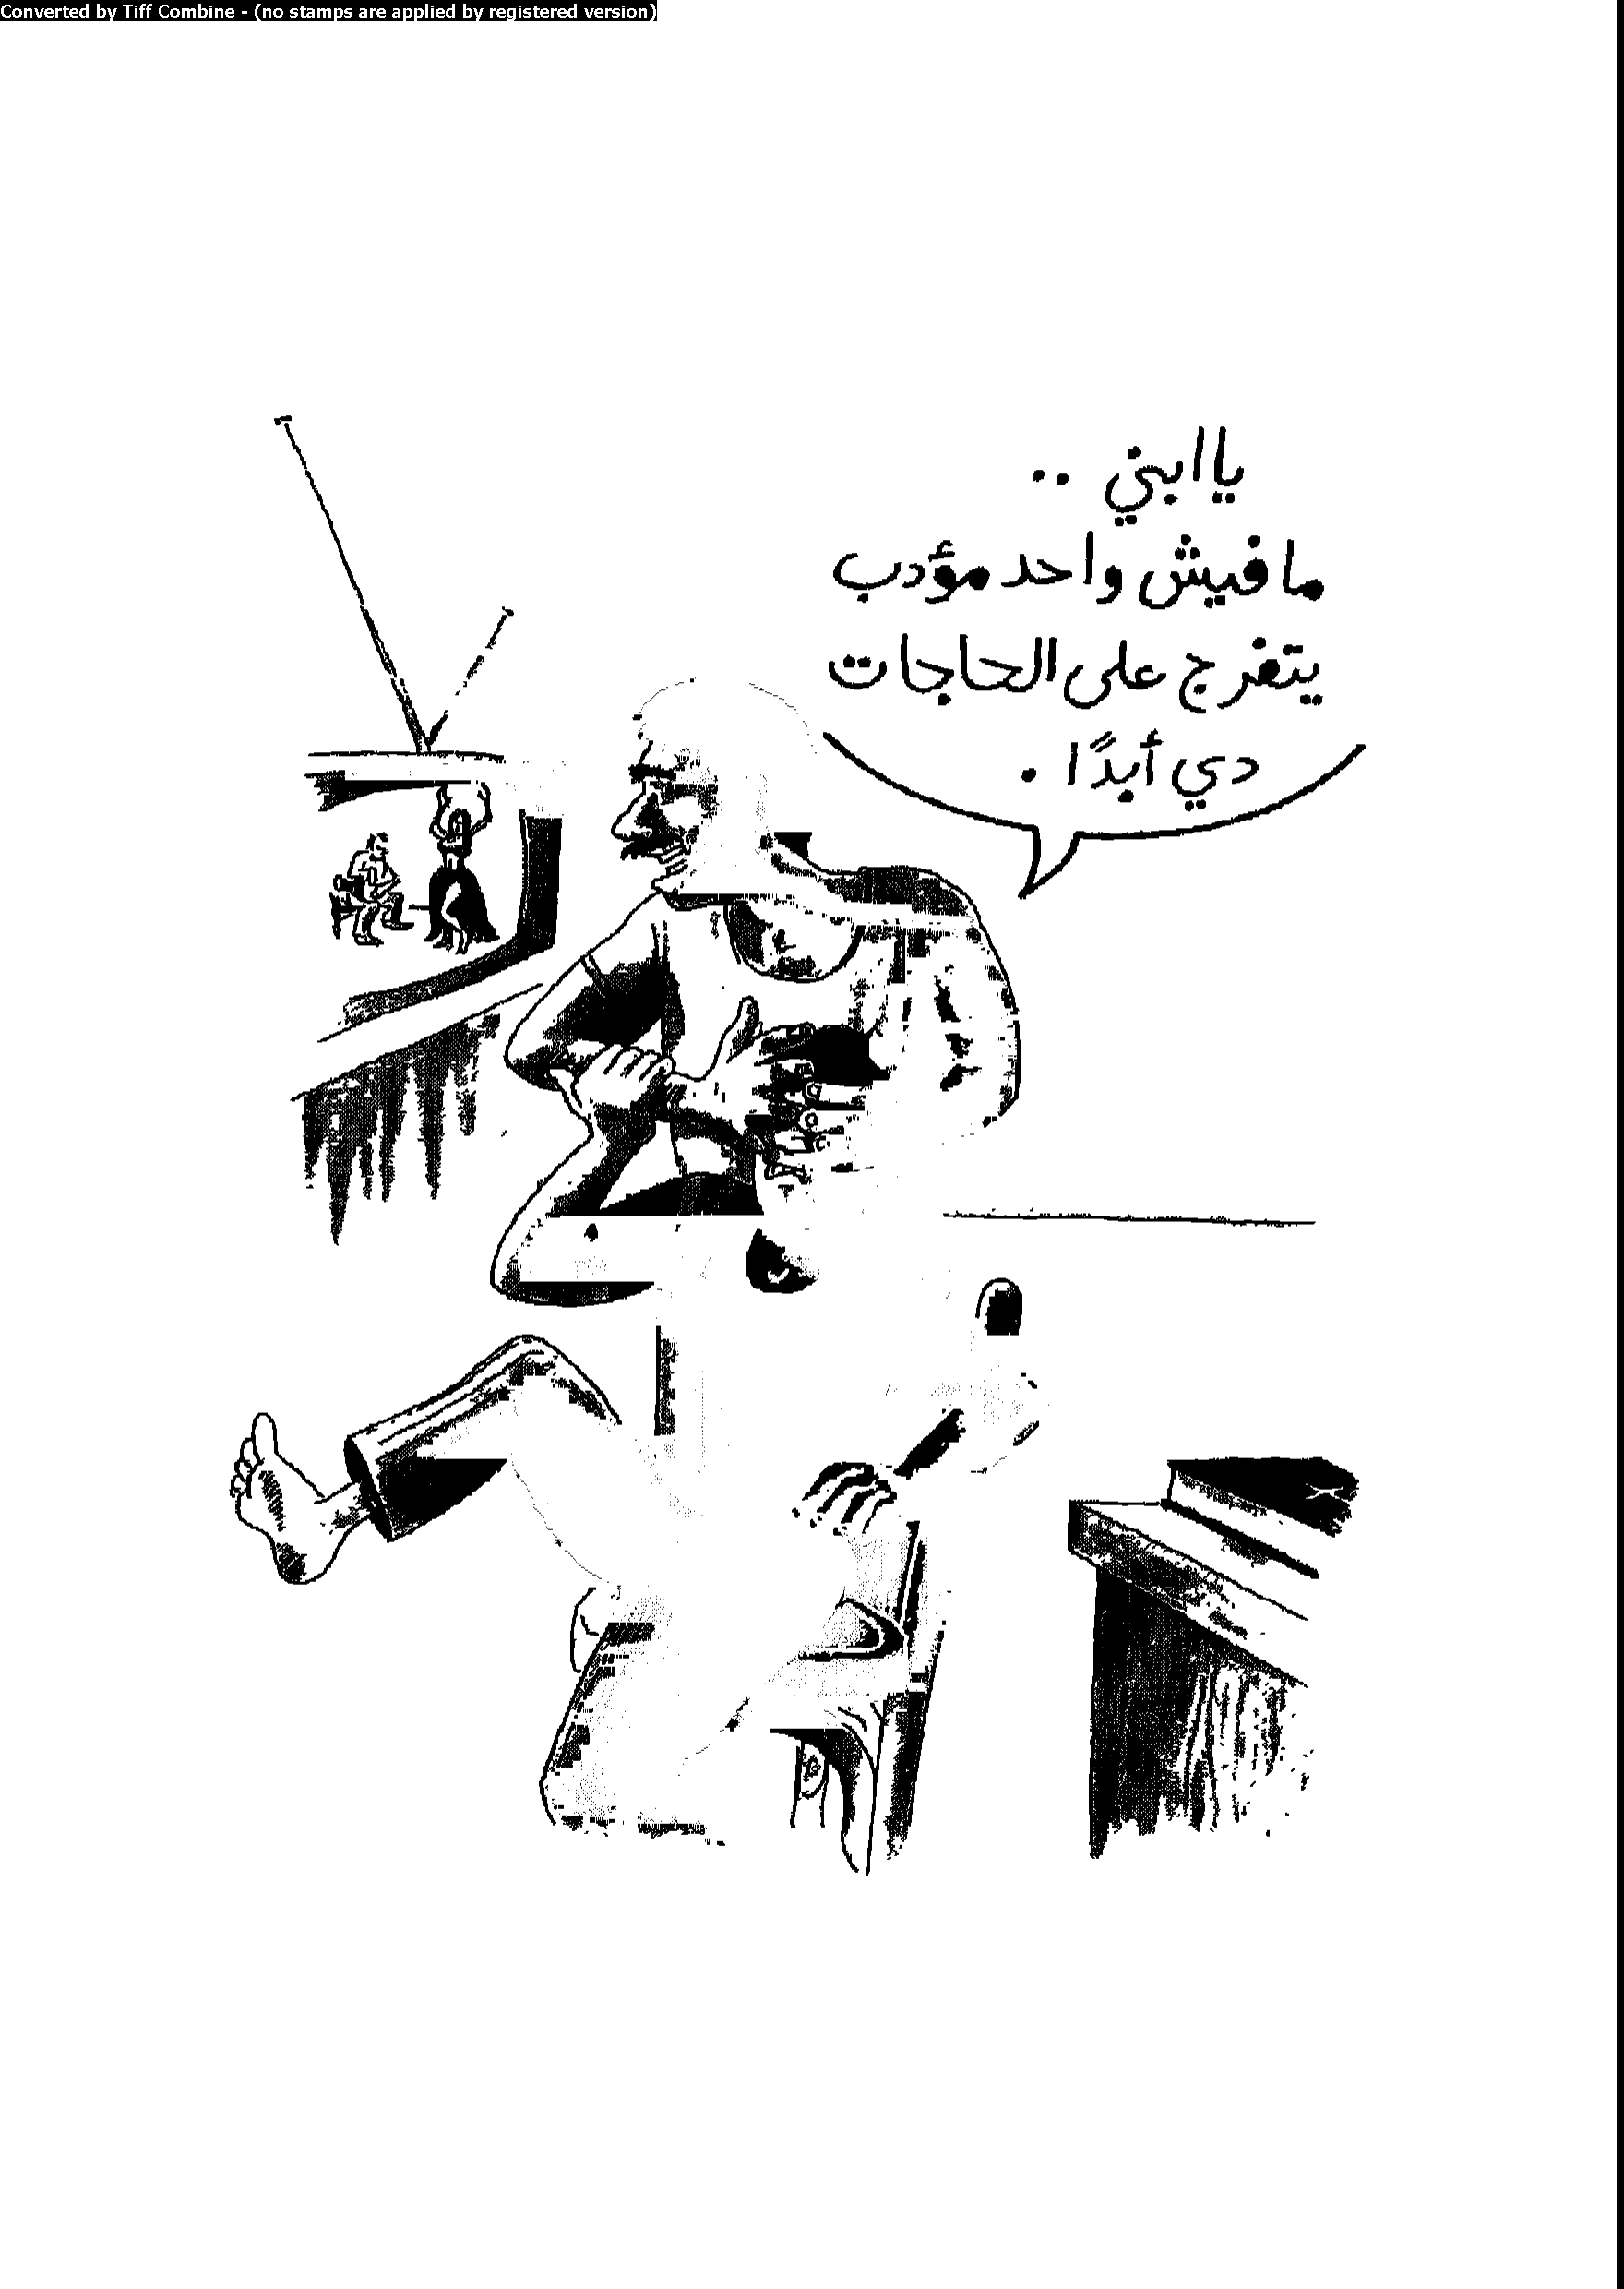 Converted by Tiff Combine - (no stamps are applied by registered version)
يا ابني ..
مافيش واحد مؤدب
يتفرج على الحاجات
دي أبدًا .